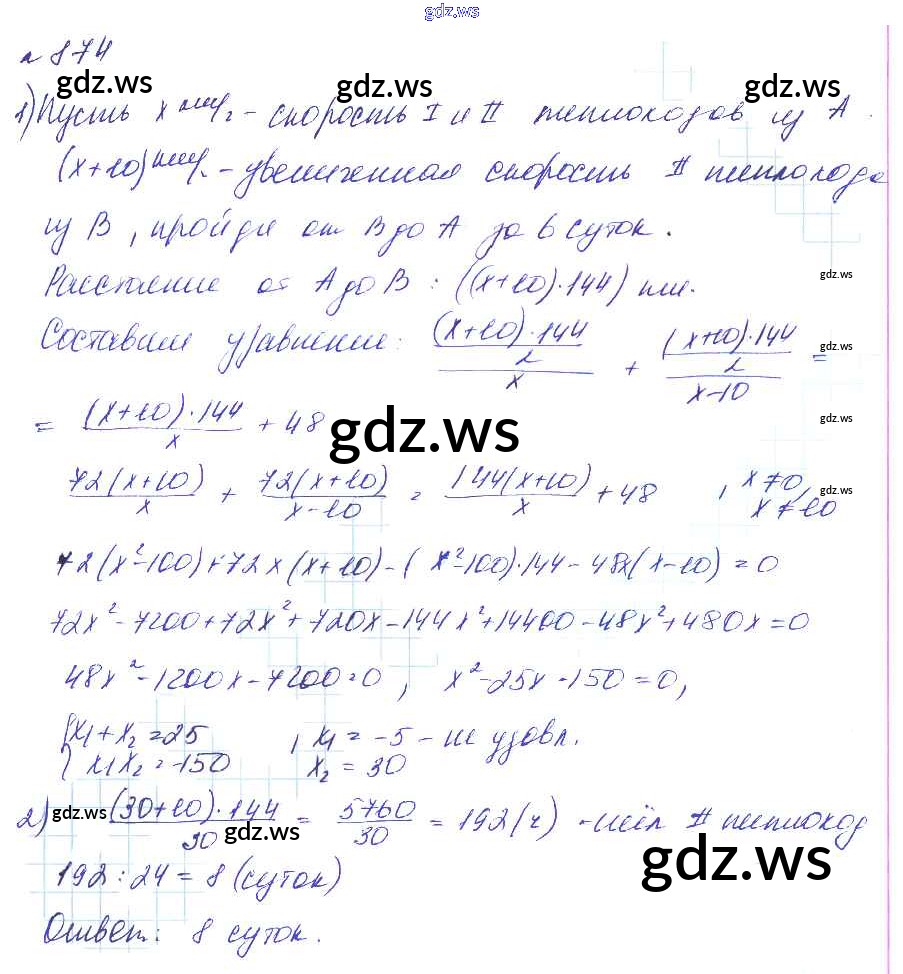 gdz.ws
№ 874
gdz.ws gdz.ws
1) Пусть x км/ч - скорость I и II теплоходов из A.
(x+10) км/ч - увеличенная скорость II теплохода
из B, пройдя от B до A за 6 суток.
gdz.ws
Расстояние от A до B: ((x+10)·144) км.
Составим уравнение: \frac{\frac{(x+10)·144}{2}}{x} + \frac{\frac{(x+10)·144}{2}}{x-10} = gdz.ws
= \frac{(x+10)·144}{x} + 48 gdz.ws gdz.ws
\frac{72(x+10)}{x} + \frac{72(x+10)}{x-10} = \frac{144(x+10)}{x} + 48, x≠0, x≠10 gdz.ws
72(x²-100)+72x(x+10)-(x²-100)·144-48x(x-10)=0
72x²-7200+72x²+720x-144x²+14400-48x²+480x=0
48x²-1200x-7200=0, x²-25x-150=0,
{x₁+x₂=25, x₁=-5 - не удовл.
x₁x₂=-150 x₂=30
2) gdz.ws \frac{(30+10)·144}{30} = \frac{5760}{30} = 192(ч) - шёл II теплоход
gdz.ws gdz.ws
192:24=8 (суток)
Ответ: 8 суток.